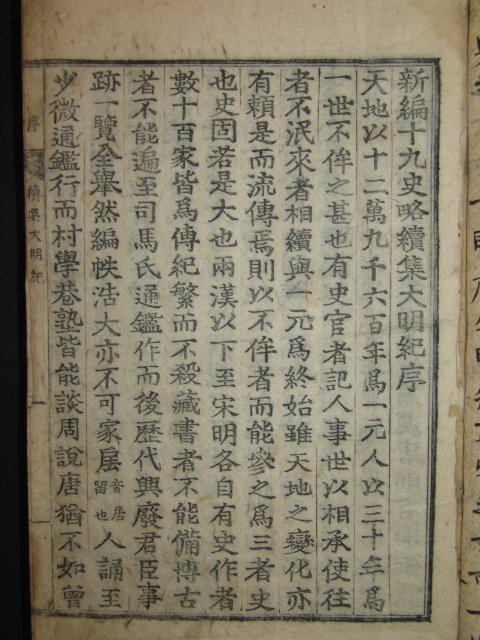 新編十九史略續集大明紀序
天地以十二萬九千六百年爲一元人以三十年爲
一世不侔之甚也有史官者記人事世以相承使徃
者不泯來者相續與一元爲終始雖天地之變化亦
有頼是而流傳焉則以不侔者而能參之爲三者史
也史固若是大也兩漢以下至宋明各自有史作者
數十百家皆爲傳紀繁而不殺藏書者不能備博古
者不能遍至司馬氏通鑑作而後歷代興廢君臣事
跡一覽全舉然編帙浩大亦不可家㞐音居留也人誦至
少微通鑑行而村學巷塾皆能談周說唐猶不如曾
序 續集大明紀 一